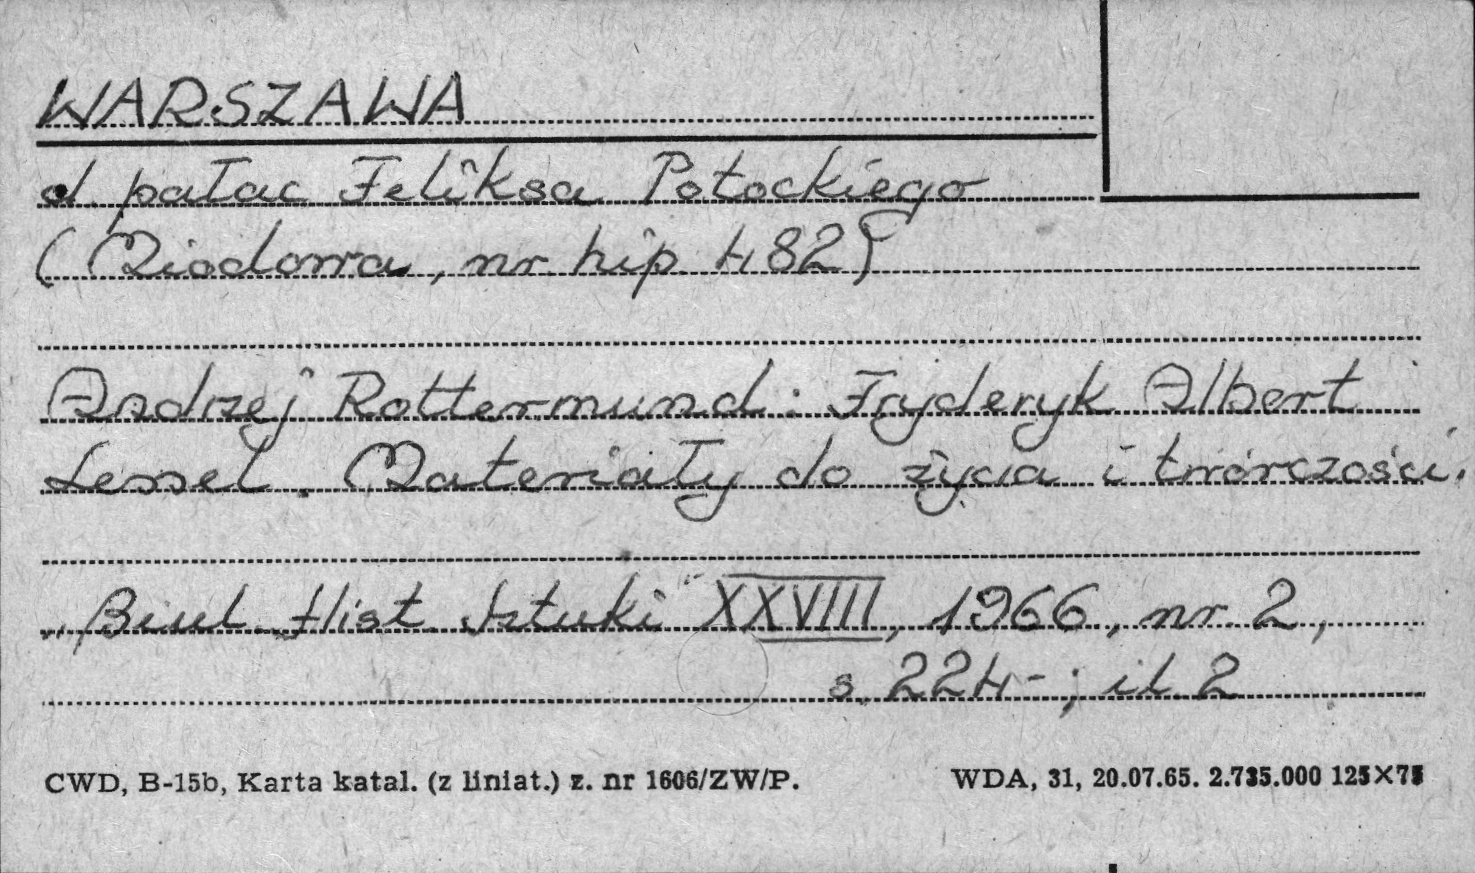 WARSZAWA
d. pałac Feliksa Potockiego
(Miodowa, nr. hip. 482)
Andrzej Rottermund : Fryderyk Albert
Lessel. Materiały do życia i twórczości.
„Biul. Hist. Sztuki" XXVIII, 1966, nr. 2,
s. 224- ; il. 2
CWD, B-15b, Karta katal. (z liniat.) z. nr 1606/ZW/P. WDA, 31, 20.07.65. 2.735.000 125×75